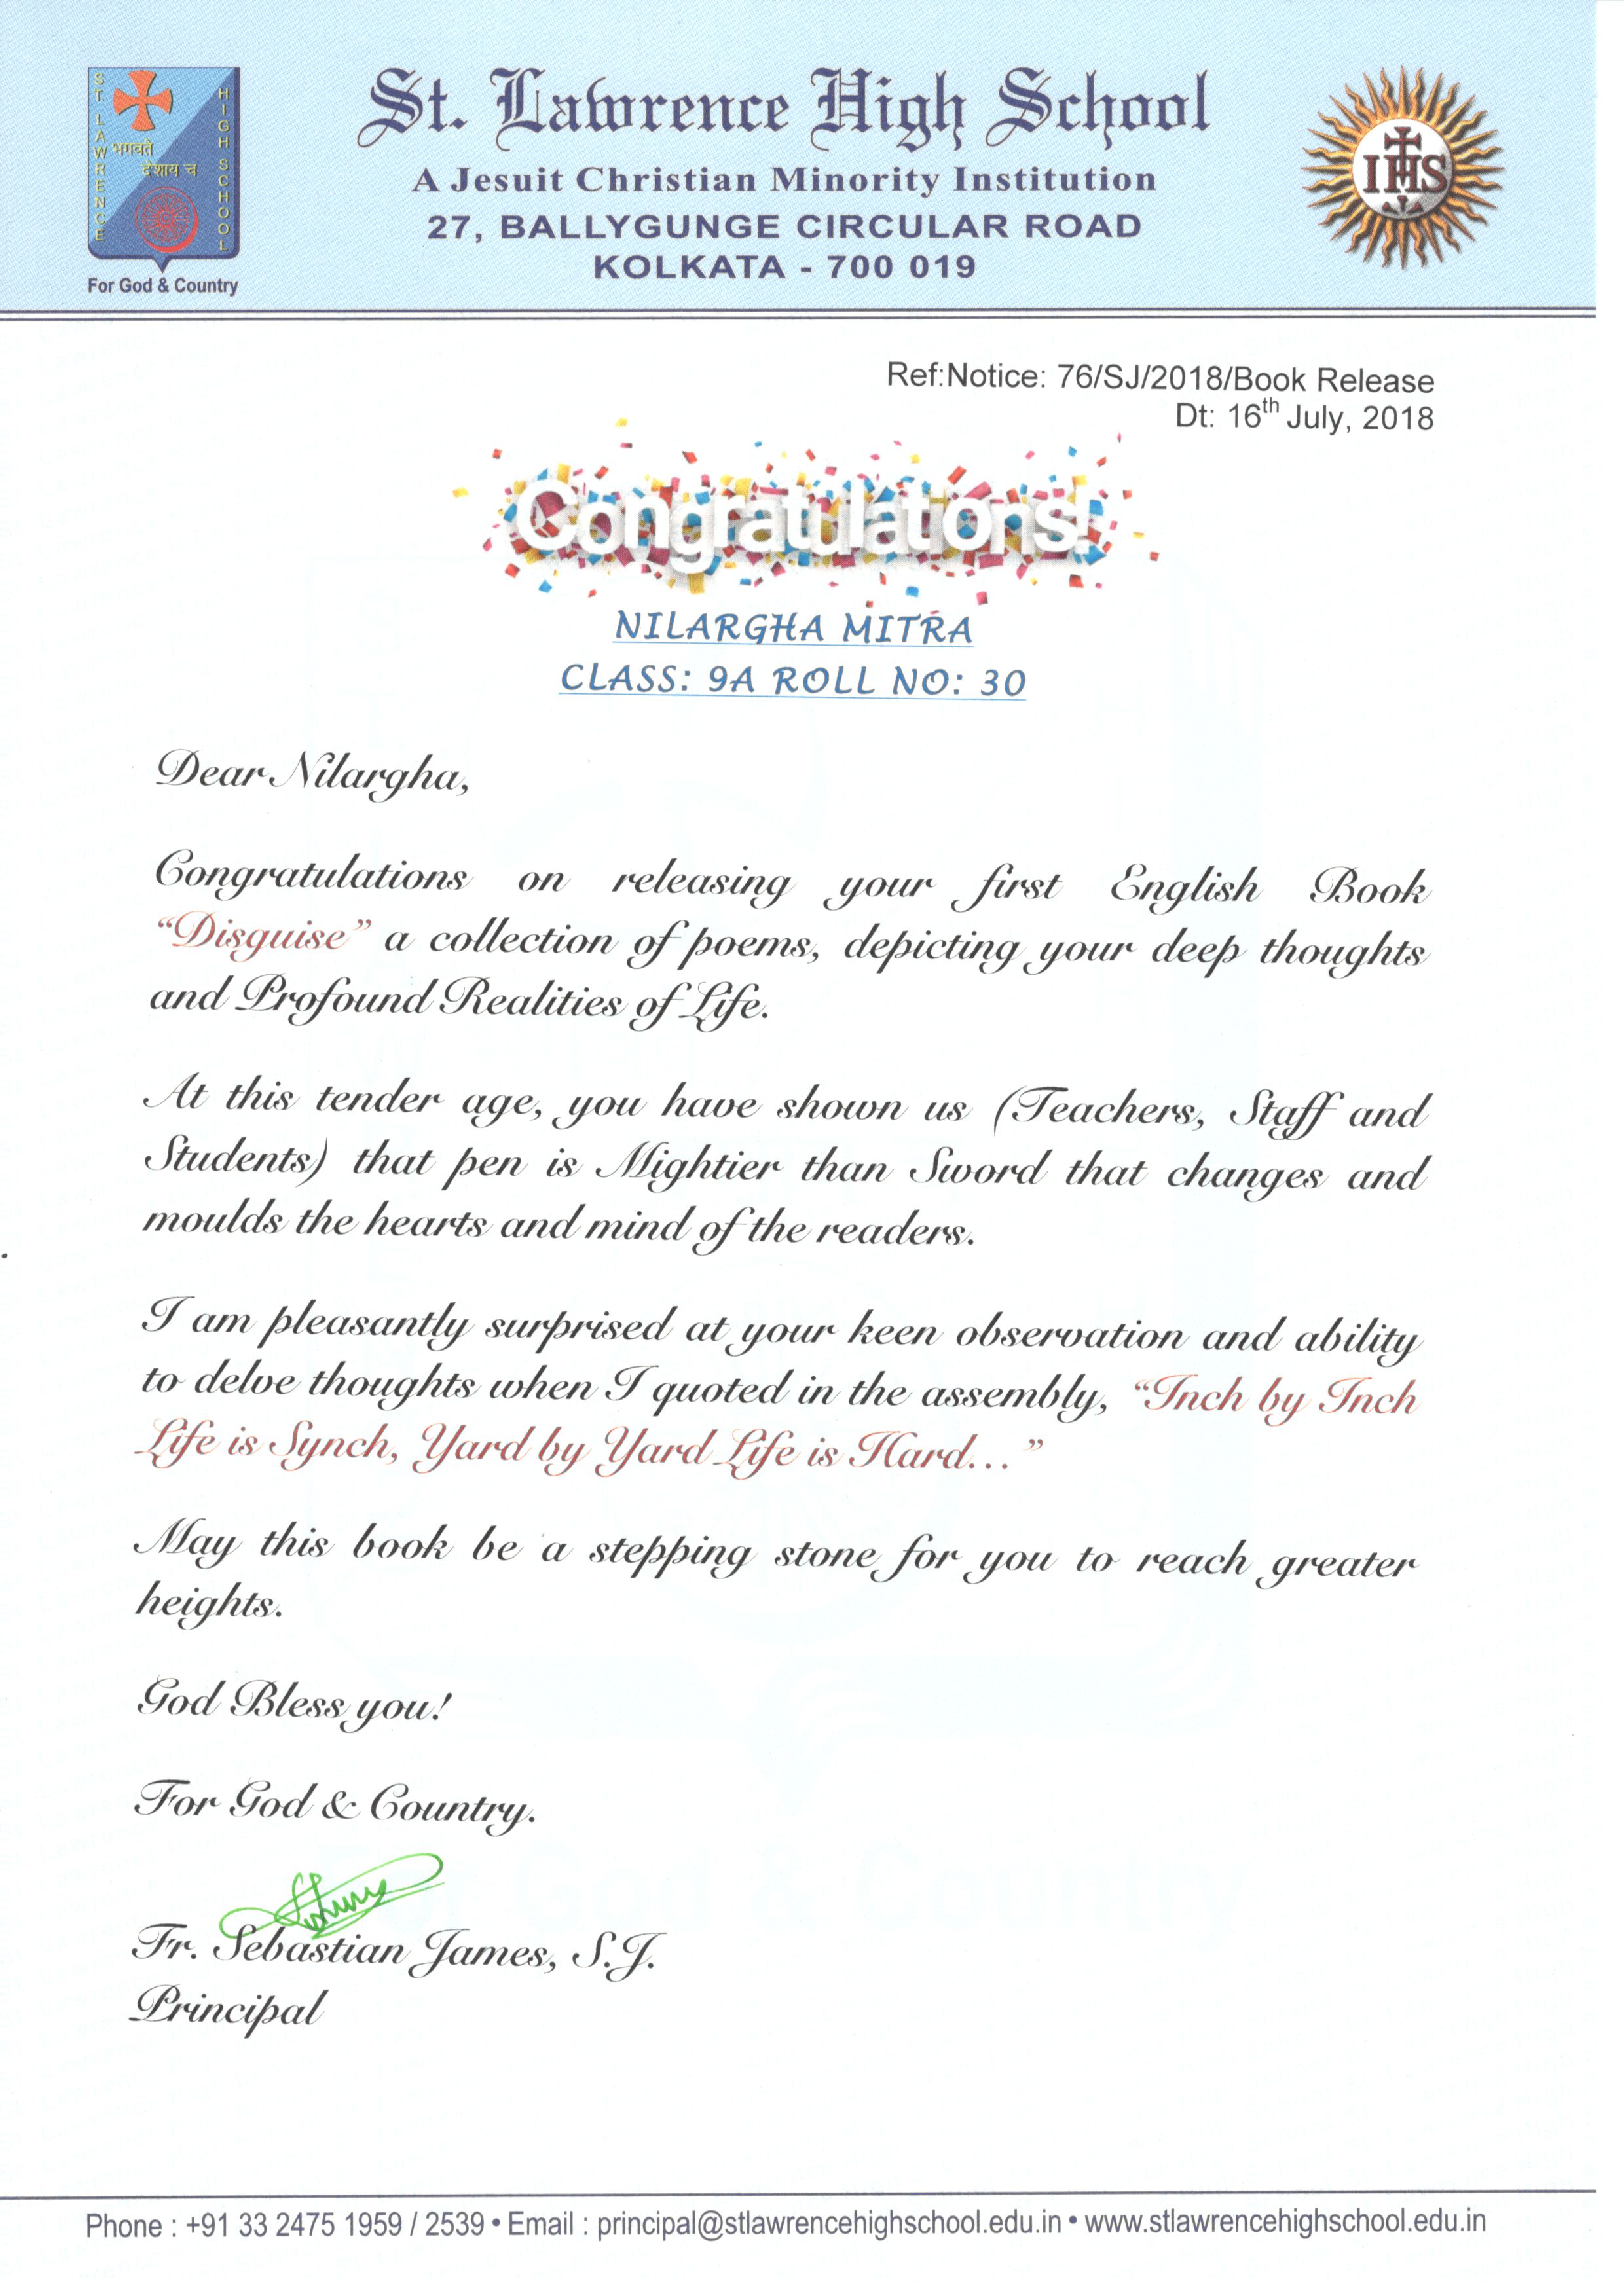 ST. LAWRENCE HIGH SCHOOL
भगवते
देशाय च
For God & Country
St. Lawrence High School
A Jesuit Christian Minority Institution
27, BALLYGUNGE CIRCULAR ROAD
KOLKATA - 700 019
IHS
Ref:Notice: 76/SJ/2018/Book Release
Dt: 16th July, 2018
Congratulations!
NILARGHA MITRA
CLASS: 9A ROLL NO: 30
Dear Nilargha,
Congratulations on releasing your first English Book
“Disguise” a collection of poems, depicting your deep thoughts
and Profound Realities of Life.
At this tender age, you have shown us (Teachers, Staff and
Students) that pen is Mightier than Sword that changes and
moulds the hearts and mind of the readers.
I am pleasantly surprised at your keen observation and ability
to delve thoughts when I quoted in the assembly, “Inch by Inch
Life is Synch, Yard by Yard Life is Hard...”
May this book be a stepping stone for you to reach greater
heights.
God Bless you!
For God & Country.
Fr. Sebastian James, S.J.
Principal
Phone : +91 33 2475 1959 / 2539 • Email : principal@stlawrencehighschool.edu.in • www.stlawrencehighschool.edu.in